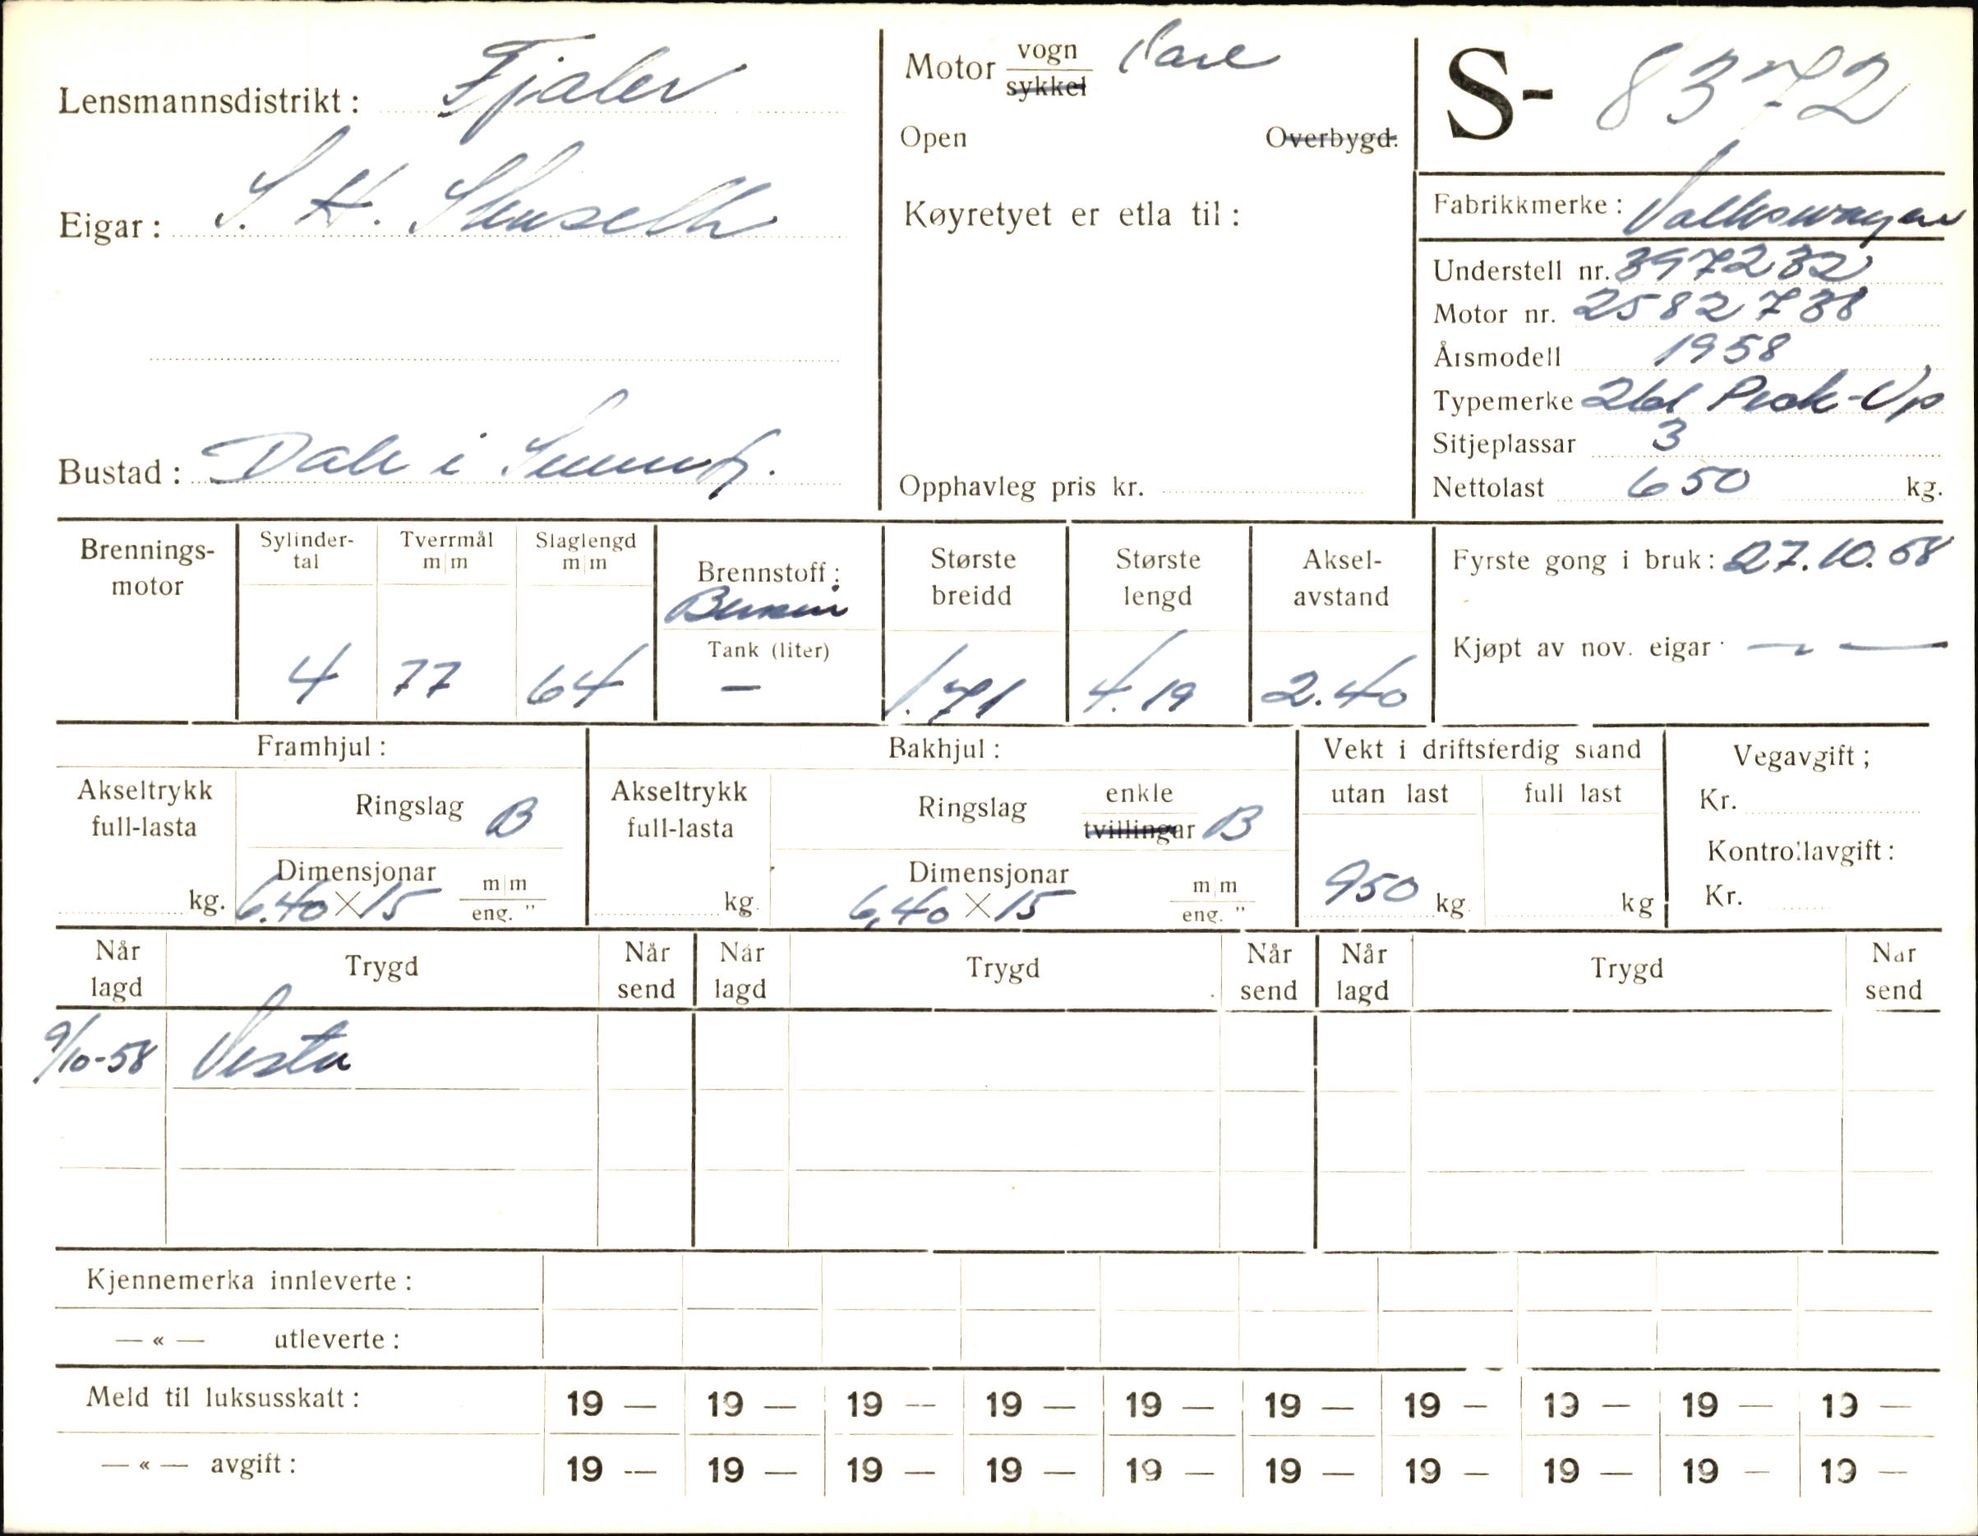 Lensmannsdistrikt: Fjaler
Eigar: S. H.
Bustad: Dale i Sunnfj.
Motor vogn
sykkel
Open Overbygd.
Køyretyet er etla til:
Opphavleg pris kr.
S- 8372
Fabrikkmerke: Volkswagen
Understell nr. 397232
Motor nr. 2582738
Årsmodell 1958
Typemerke 261 Pick-Up
Sitjeplassar 3
Nettolast 650 kg.
Brennings-
motor
Sylinder-
tal
4
Tverrmål
m|m
77
Slaglengd
m|m
64
Brennstoff:
Bensin
Tank (liter)
—
Største
breidd
1.71
Største
lengd
4.19
Aksel-
avstand
2.40
Fyrste gong i bruk: 27.10.58
Kjøpt av nov. eigar: — —
Framhjul:
Akseltrykk
full-lasta
kg.
Ringslag B
Dimensjonar
6.40 X 15
m|m
eng. "
Bakhjul:
Akseltrykk
full-lasta
kg.
Ringslag
enkle
tvillingar B
Dimensjonar
6,40 X 15
m|m
eng. "
Vekt i driftsferdig stand
utan last
950 kg.
full last
kg
Vegavgift;
Kr.
Kontrollavgift:
Kr.
Når
lagd
Trygd
Når
send
Når
lagd
Trygd
Når
send
Når
lagd
Trygd
Når
send
9/10-58 Vesta
Kjennemerka innleverte:
— « — utleverte:
Meld til luksusskatt: 19 — 19 — 19 — 19 — 19 — 19 — 19 — 19 — 19 — 19 —
— « — avgift: 19 — 19 — 19 — 19 — 19 — 19 — 19 — 19 — 19 — 19 —